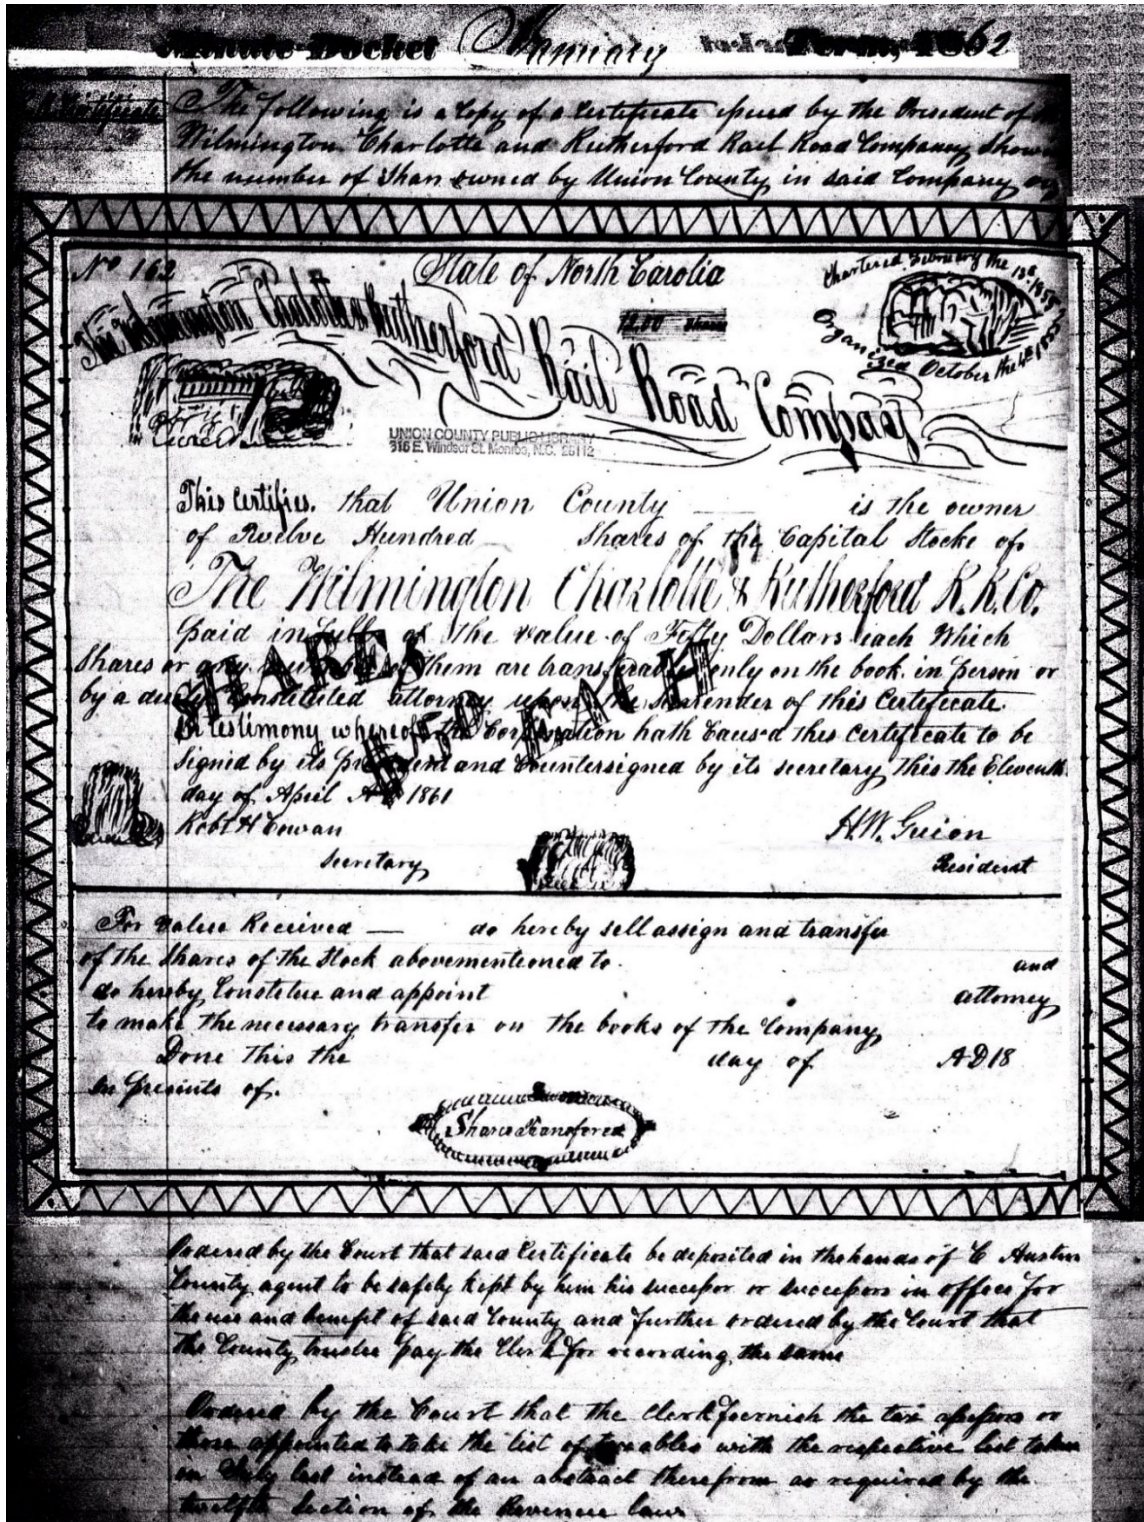 Minute Docket January Term, 1862
The following is a Copy of a Certificate issued by the President of
Wilmington Charlotte and Rutherford Rail Road Company Show
the number of Shar owned by Union County in said Company
No 162
State of North Carolia
12.00 Shares
Chartered February the 13th 1855
Organised October the
The Wilmington Chalotte & Rutherford Rail Road Company
UNION COUNTY PUBLIC LIBRARY
316 E. Windsor St. Monroe, N.C. 28112
This Certifies. that Union County is the owner
of Twelve Hundred Shares of the Capital Stocke of
The Wilmington Charlotte & Rutherford R.R.Co.
paid in full of the value of Fifty Dollars each Which
Shares or any of them are transferable only on the book. in person or
by a duely Constituted attorney upon the surrender of this Certificate.
SHARES
$50 EACH
In testimony whereof the Corporation hath Caused this Certificate to be
Signed by its President and Countersigned by its secretary this the Eleventh
day of April AD 1861
Robt H Cowan
H.W. Guion
Secretary
President
For value Received — do hereby sell assign and transfer
of the Shares of the Stock abovementioned to
and
do hereby Constitue and appoint
attorney
to make the necessary transfer on the books of the Company
Done this the day of AD18
In presents of.
Shares Transfered
Ordered by the Court that said Certificate be deposited in the hands of C Austin
County agent to be safely kept by him his successor or successors in office for
the use and benefit of said County and further ordered by the Court that
the County trustee pay the Clerk for recording the same
Ordered by the Court that the Clerk Foernish the tax assessors or
those appointed to take the list of taxables with the respective list taken
in July last instead of an abstract therefrom as required by the
twelfth Section of the Revenue law